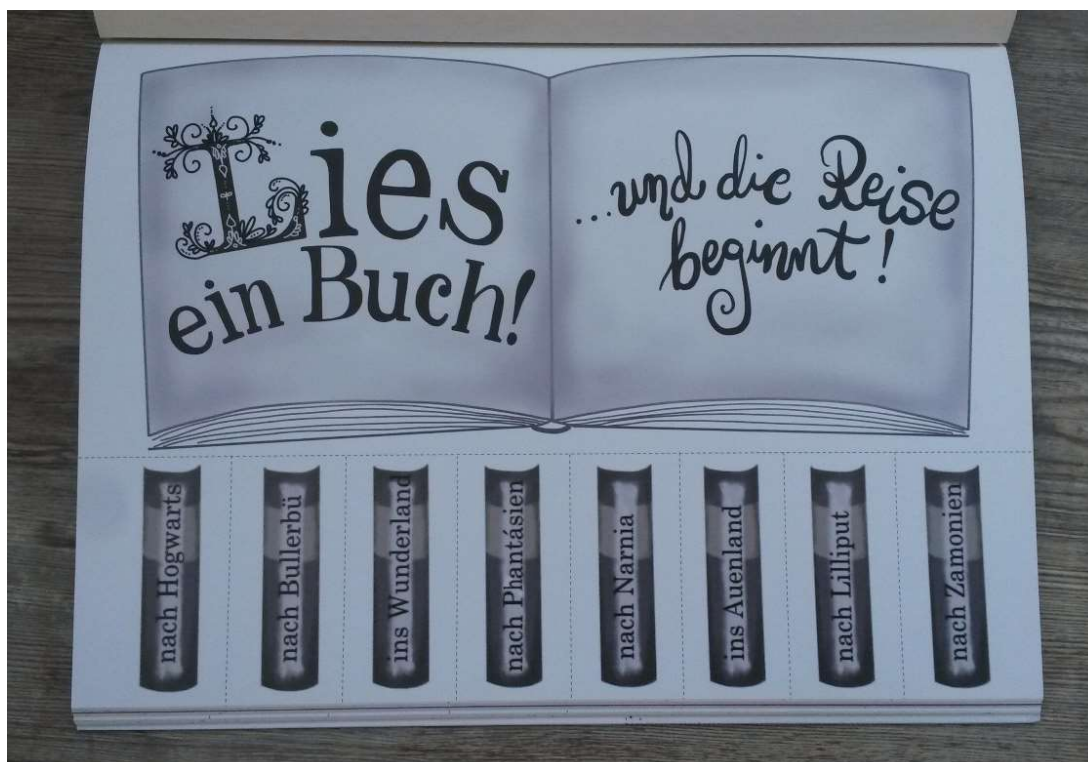 Lies
ein Buch!
...und die Reise
beginnt!
nach Hogwarts
nach Bullerbü
ins Wunderland
nach Phantásien
nach Narnia
ins Auenland
nach Lilliput
nach Zamonien